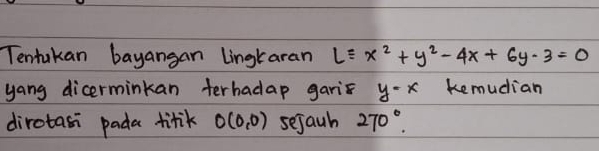 Tentukan bayangan lingkaran L ≡ x² + y² - 4x + 6y - 3 = 0
yang dicerminkan terhadap garis y = x kemudian
dirotasi pada titik O(0,0) sejauh 270°.